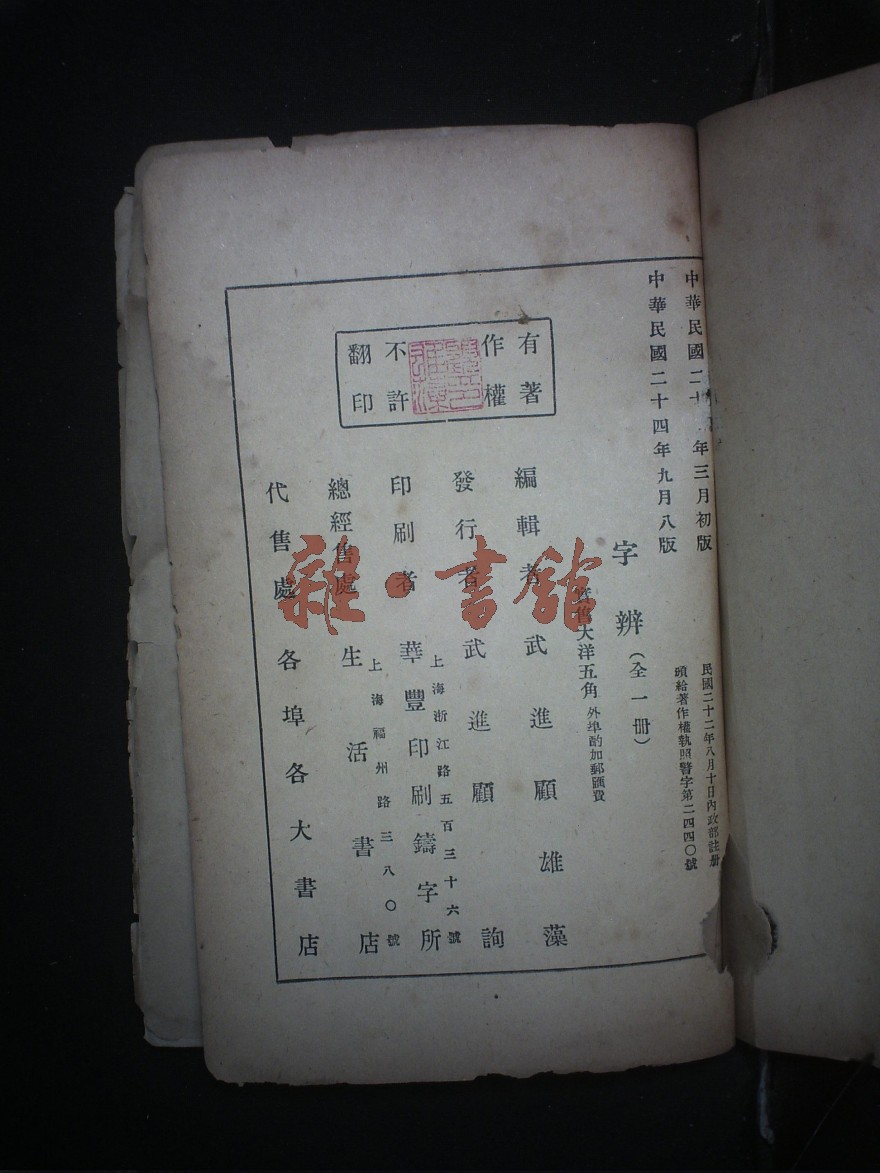 中華民國二十 年三月初版
中華民國二十四年九月八版
民國二十二年八月十日內政部註册
頒給著作權執照警字第二四四〇號
字辨（全一册）
實售大洋五角 外埠酌加郵匯費
有著
作權
不許
翻印
編輯者 武進顧雄藻
發行者 武進顧詢
印刷者 華豐印刷鑄字所
上海浙江路五百三十六號
總經售處 生活書店
上海福州路三八〇號
代售處 各埠各大書店
雜·書館